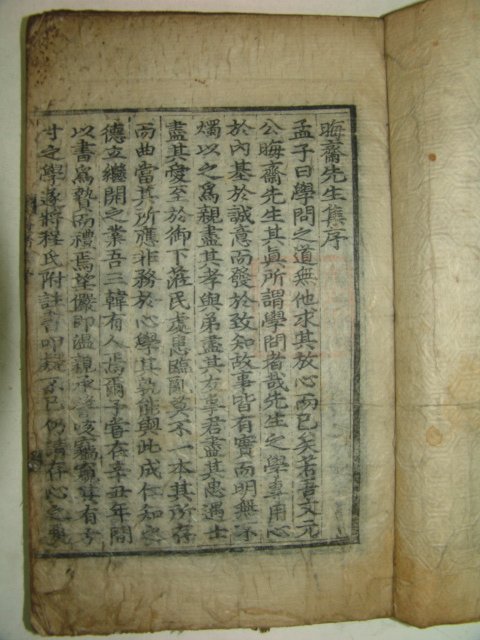 晦齋先生集序
孟子曰學問之道無他求其放心而已矣若吾文元
公晦齋先生其眞所謂學問者哉先生之學專用心
於內基於誠意而發於致知故事皆有實而明無不
燭以之爲親盡其孝與弟盡其友事君盡其忠遇士
盡其愛至於御下莅民處患臨亂莫不一本其所存
而曲當其所應非務於心學其孰能與此成仁知之
德立繼開之業吾三韓有人焉爾予嘗在辛丑年間
以書爲贄而禮焉望儼卽溫親承謦咳竊窺其有考
寸之學遂將程氏附註書叩疑了已仍請存心之